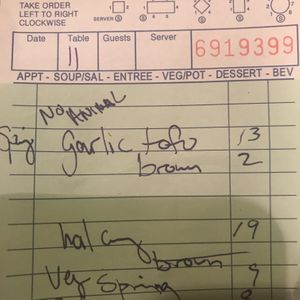 TAKE ORDER
LEFT TO RIGHT
CLOCKWISE
SERVER
S S S S
Date Table Guests Server
11
6919399
APPT - SOUP/SAL - ENTREE - VEG/POT - DESSERT - BEV
NO ANIMAL
garlic tofu 13
brown 2
19
brown
Veg Spring 9